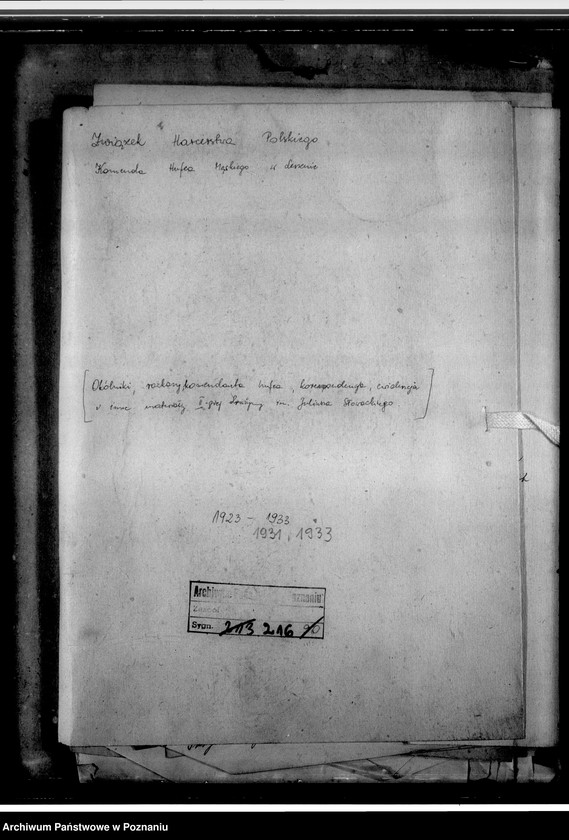 Związek Harcerstwa Polskiego
Komenda Hufca Męskiego w Lesznie
[Okólniki, rozkazy komendanta hufca, korespondencja, ewidencja
i inne materiały II-giej Drużyny im. Juliusza Słowackiego]
1923 - 1933
1931, 1933
Archiwum Poznaniu
Zespół
Sygn. 213 216
Archiwum Państwowe w Poznaniu